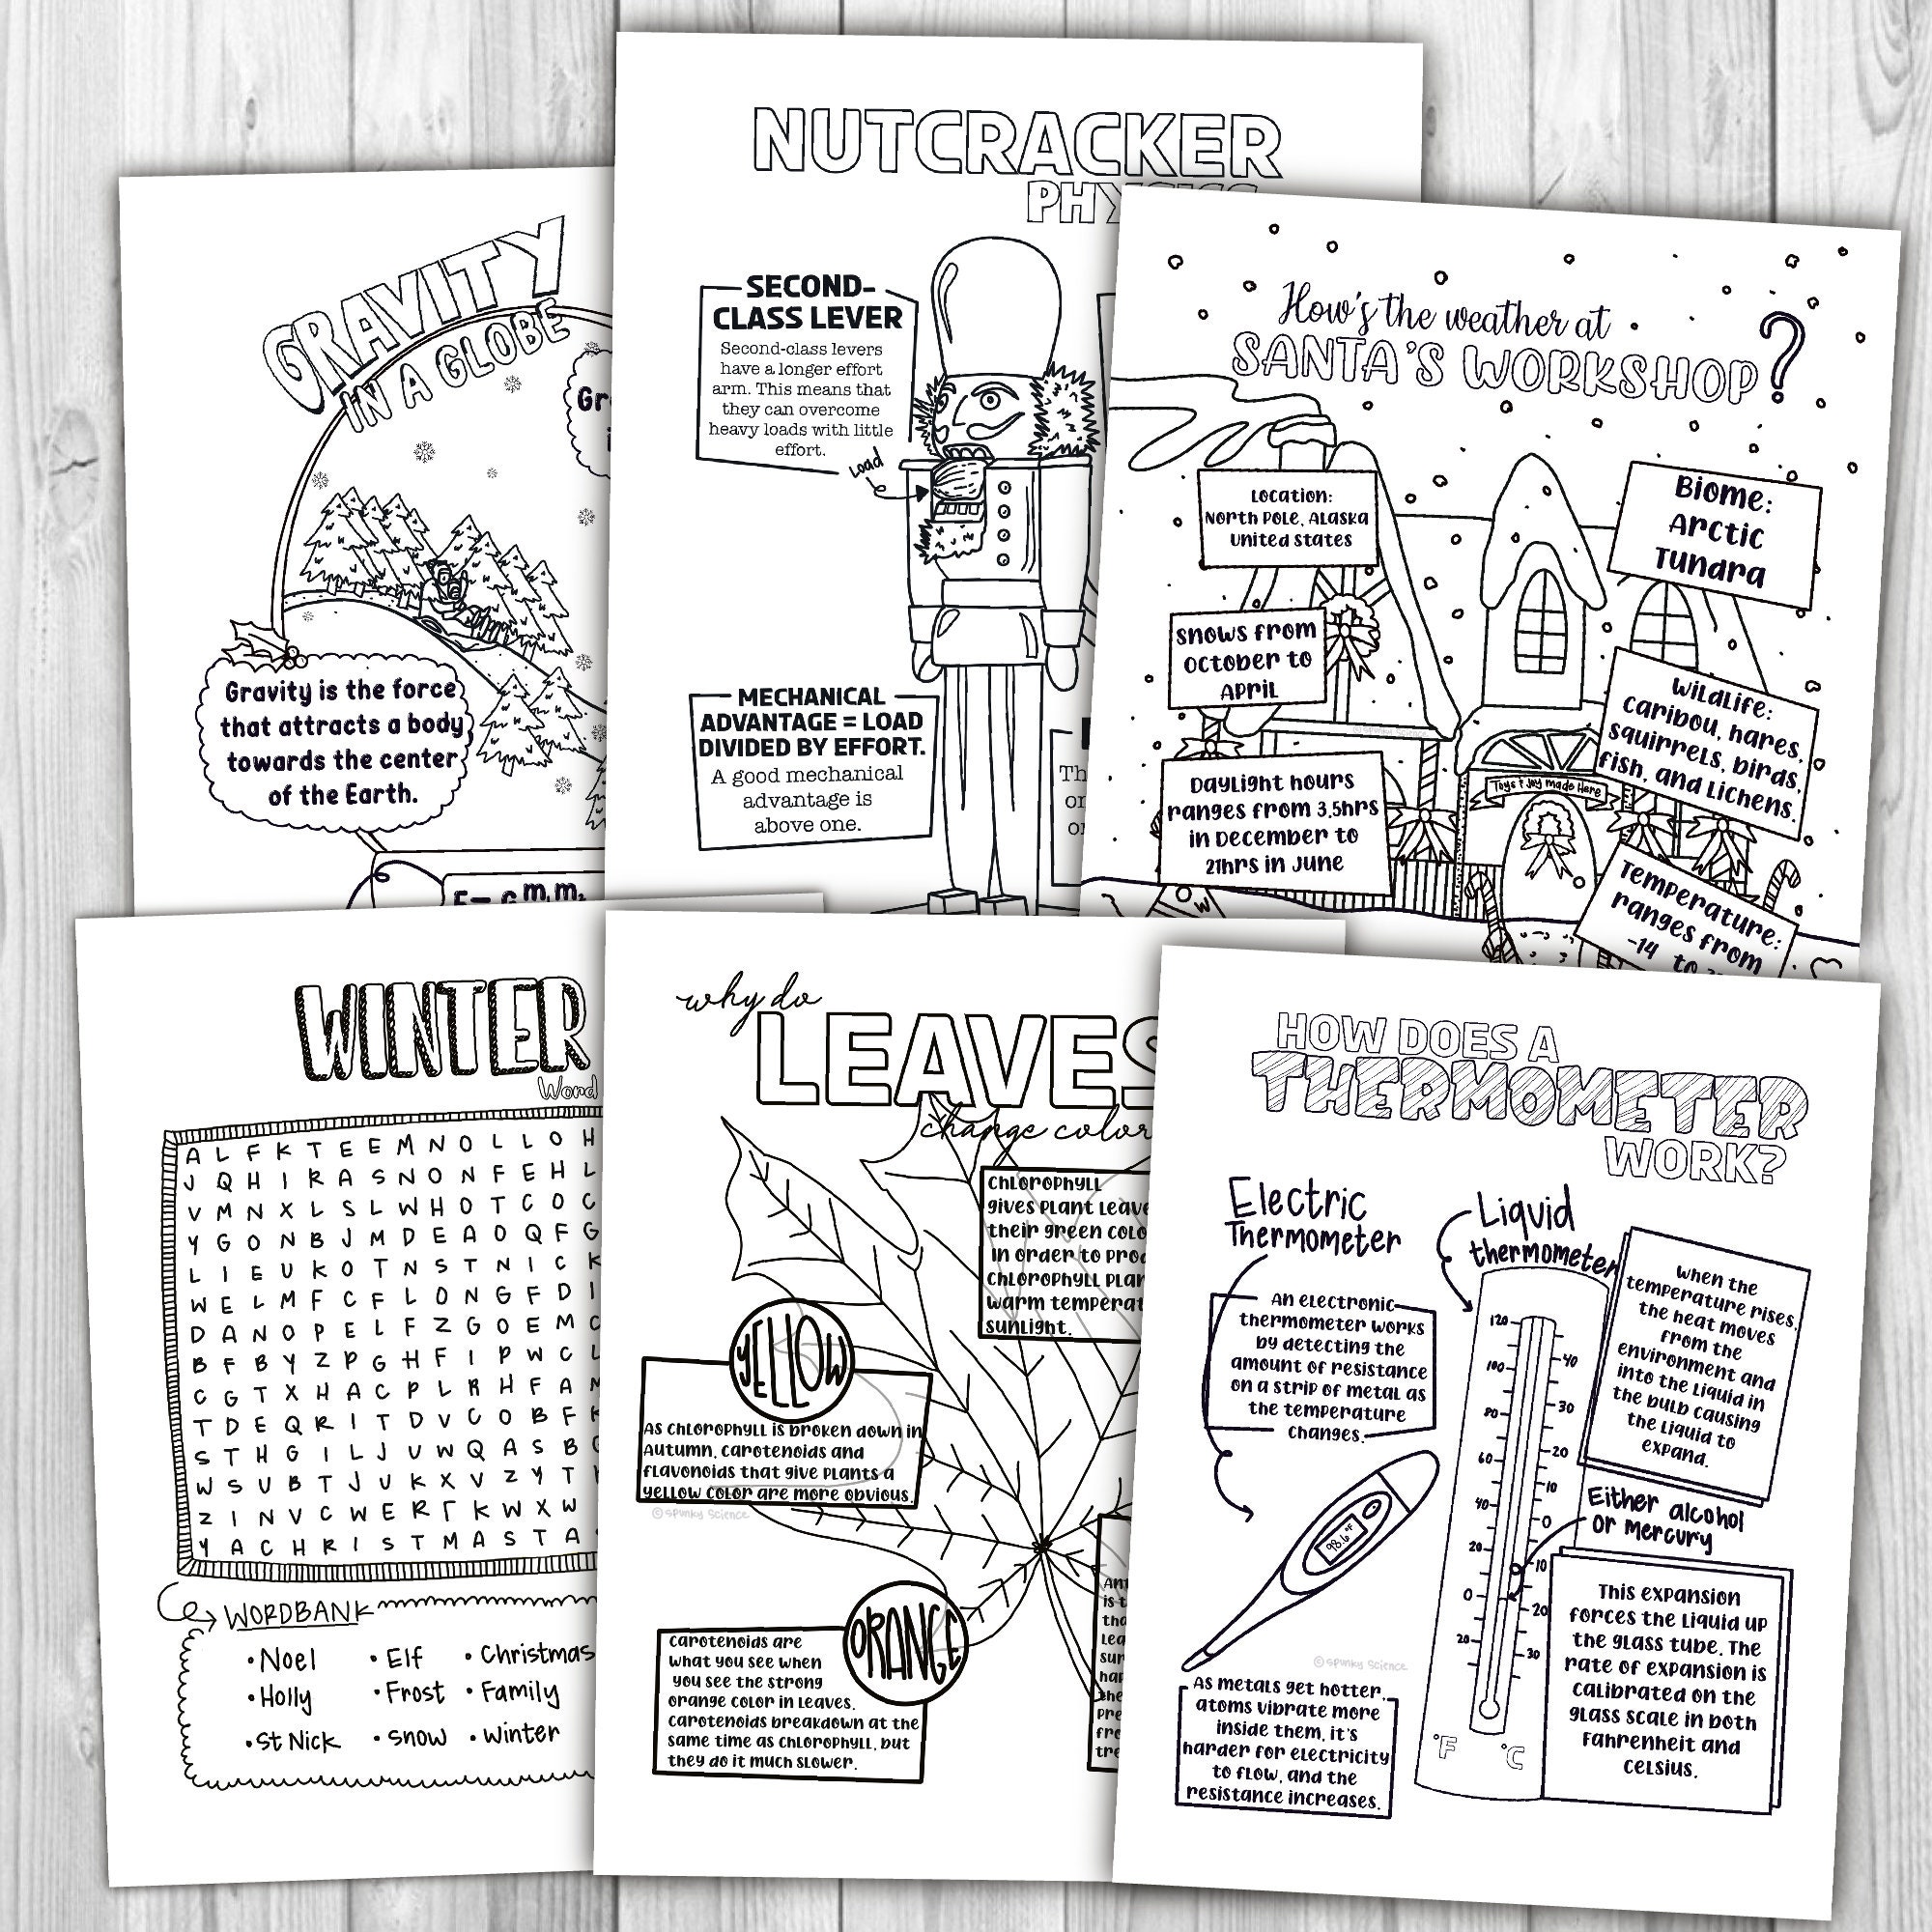 GRAVITY
IN A GLOBE
Gravity is the force
that attracts a body
towards the center
of the Earth.
NUTCRACKER
SECOND-
CLASS LEVER
Second-class levers
have a longer effort
arm. This means that
they can overcome
heavy loads with little
effort.
Load
MECHANICAL
ADVANTAGE = LOAD
DIVIDED BY EFFORT.
A good mechanical
advantage is
above one.
How's the weather at
SANTA'S WORKSHOP?
Location:
North Pole, Alaska
United States
Biome:
Arctic
Tundra
Snows from
October to
April
Wildlife:
caribou, hares,
squirrels, birds,
fish, and lichens.
Daylight hours
ranges from 3.5hrs
in December to
21hrs in June
Toys & Joy made Here
Temperature:
ranges from
-14 to
WINTER
Word
A L F K T E E M N O L L O H
J Q H I R A S N O N F E H L
V M N X L S L W H O T C O C
Y G O N B J M D E A O Q F G
L I E U K O T N S T N I C K
W E L M F C F L O N G F D I
D A N O P E L F Z G O E M C
B F B Y Z P G H F I P W C L
C G T X H A C P L R H F A
T D E Q R I T D V C O B F
S T H G I L J U W Q A S B
W S U B T J U K X V Z Y T
Z I N V C W E R T K W X W
Y A C H R I S T M A S T A
WORDBANK
• Noel • Elf • Christmas
• Holly • Frost • Family
• St Nick • Snow • Winter
why do
LEAVES
change color
Chlorophyll
gives plant
their green
in order to
chlorophyll
warm
sunlight.
YELLOW
As chlorophyll is broken down in
Autumn, carotenoids and
flavonoids that give plants a
yellow color are more obvious.
© Spunky Science
ORANGE
Carotenoids are
what you see when
you see the strong
orange color in leaves.
Carotenoids breakdown at the
same time as chlorophyll, but
they do it much slower.
HOW DOES A
THERMOMETER
WORK?
Electric
Thermometer
An electronic
thermometer works
by detecting the
amount of resistance
on a strip of metal as
the temperature
changes.
98.6 °F
© Spunky Science
As metals get hotter,
atoms vibrate more
inside them, it's
harder for electricity
to flow, and the
resistance increases.
Liquid
thermometer
120
100
80
60
40
20
0
20
40
30
20
10
0
10
20
30
°F °C
When the
temperature rises,
the heat moves
from the
environment and
into the liquid in
the bulb causing
the liquid to
expand.
Either alcohol
or mercury
This expansion
forces the liquid up
the glass tube. The
rate of expansion is
calibrated on the
glass scale in both
Fahrenheit and
Celsius.